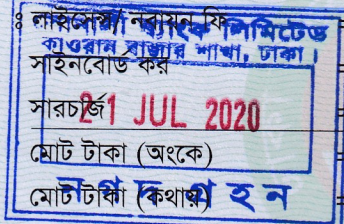 : লাইসেন্স/ নবায়ন ফি
লিমিটেড
কাওরান বাজার শাখা, ঢাকা।
সাইনবোর্ড কর
সারচার্জ
21 JUL 2020
মোট টাকা (অংকে)
মোট টাকা (কথায়)
নগদ গ্রহন